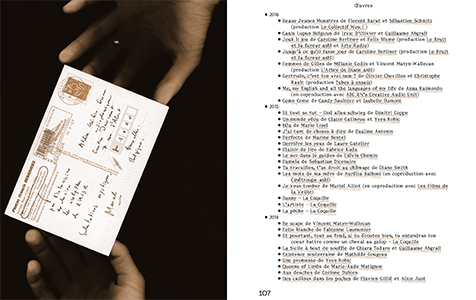 Œuvres
2016
Beaux Jeunes Monstres de Florent Barat et Sébastien Schmitz
(production Le Collectif Wow!)
Canis Lupus Belgicus de Irvic D'Olivier et Guillaume Abgrall
Jouk li jou de Caroline Berliner et Felix Blume (production Le Bruit
et la fureur asbl et Arte Radio)
Jusqu'à ce qu'il fasse jour de Caroline Berliner (production Le Bruit
et la fureur asbl)
Femmes de Gilles de Mélanie Godin et Vincent Matyn-Wallecan
(production L'Arbre de Diane asbl)
Gertrude, c'est ton vrai nom ? de Olivier Chevillon et Christophe
Rault (production Tubes à essais)
Me, my English and all the languages of my life de Anna Raimondo
(en coproduction avec ABC RN's Creative Audio Unit)
Come Come de Candy Saulnier et Isabelle Dumont
2015
Et tout se tut – Und alles schwieg de Dimitri Coppe
Un monde vécu de Claire Gatineau et Yves Robic
bOa de Marie Lisel
J'ai tant de choses à dire de Pauline Antonin
Perfecto de Marine Bestel
Derrière les yeux de Laure Gatelier
Plaisir de lire de Fabrice Kada
La mer dans le guidon de Lidwin Chemin
Pamela de Sébastien Dicenaire
Tu travailles, t'es droit au chômage de Diane Smith
Les mots de ma mère de Aurélia Balboni (en coproduction avec
Je veux tomber de Muriel Alliot (en coproduction avec Les Films de
la Veille)
Danny – La Coquille
L'artiste – La Coquille
La pêche – La Coquille
2014
Be scape de Vincent Matyn-Wallecan
Folie blanche de Fabienne Laumonier
Et pourtant, tout au fond, si tu écoutes bien, tu entendras ton
coeur battre comme un cheval au galop – La Coquille
La Sicile à bout de souffle de Chiara Todaro et Guillaume Abgrall
Existence souterraine de Mathilde Gougoux
Une promesse de Yves Robic
Queens of Limbo de Marie-Aude Matignon
Aux douches de Corinne Dubien
Des cailloux dans les poches de Flavien Gillié et Alice Just
107